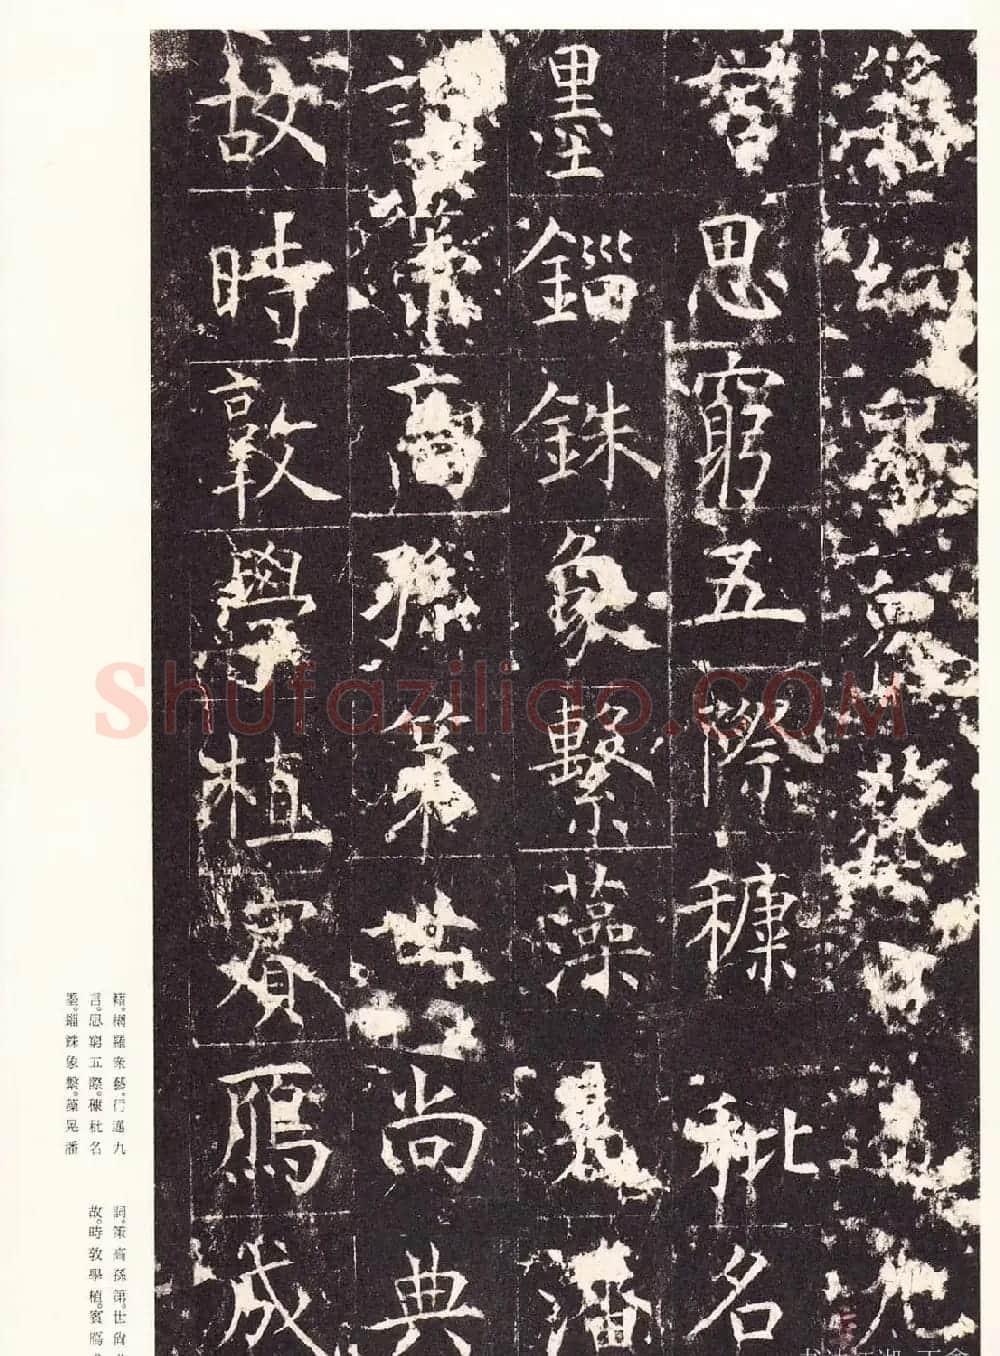 羅衆藝行
言思窮五際穅秕名
墨錙銖象繫藻晃潘
詞策高孫第世尚典
故時敦學植賓鴈成
Shufaziliao.COM
籍網羅衆藝行邁九
言思窮五際穅秕名
墨錙銖象繫藻晃潘
詞策高孫第世尚
故時敦學植賓鴈